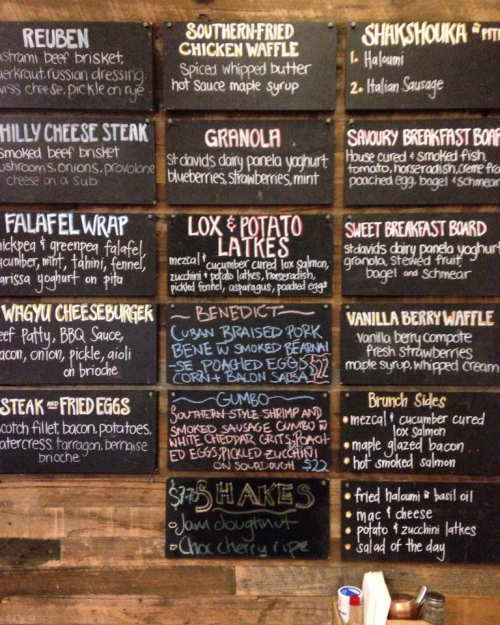 REUBEN
beef brisket,
russian dressing
cheese, pickle on rye
SOUTHERN-FRIED
CHICKEN WAFFLE
Spiced whipped butter
hot sauce maple syrup
SHAKSHOUKA
1. Haloumi
2. Italian Sausage
HILLY CHEESE STEAK
smoked beef brisket
ushrooms, onions, provolone
cheese on a sub
GRANOLA
st davids dairy panela yoghurt
blueberries, strawberries, mint
SAVOURY BREAKFAST BOAR
House cured & smoked fish,
tomato, horseradish, creme fra
poached egg, bagel & schmear
FALAFEL WRAP
hickpea & greenpea falafel,
ucumber, mint, tahini, fennel,
arissa yoghurt on pita
LOX & POTATO
LATKES
mezcal & cucumber cured lox salmon,
zucchini & potato latkes, horseradish,
pickled fennel, asparagus, poached eggs
SWEET BREAKFAST BOARD
st davids dairy panela yoghurt
granola, stewed fruit,
bagel and schmear
WAGYU CHEESEBURGER
eef Patty, BBQ Sauce,
acon, onion, pickle, aioli
on brioche
BENEDICT
CUBAN BRAISED PORK
BENE W SMOKED BEARNAI
-SE POACHED EGGS $22
CORN + BACON SALSA
VANILLA BERRY WAFFLE
Vanilla berry compote
Fresh strawberries
maple syrup, whipped cream
STEAK AND FRIED EGGS
scotch fillet, bacon, potatoes,
atercress, tarragon, bernaise
brioche
GUMBO
SOUTHERN-STYLE SHRIMP AND
SMOKED SAUSAGE GUMBO W
WHITE CHEDDAR GRITS, POACH-
ED EGGS, PICKLED ZUCCHINI
ON SOURDOUGH $22
Brunch Sides
• mezcal & cucumber cured
lox salmon
• maple glazed bacon
• hot smoked salmon
SHAKES
- Jam doughnut
- Choc cherry ripe
• fried haloumi & basil oil
• mac & cheese
• potato & zucchini latkes
• salad of the day